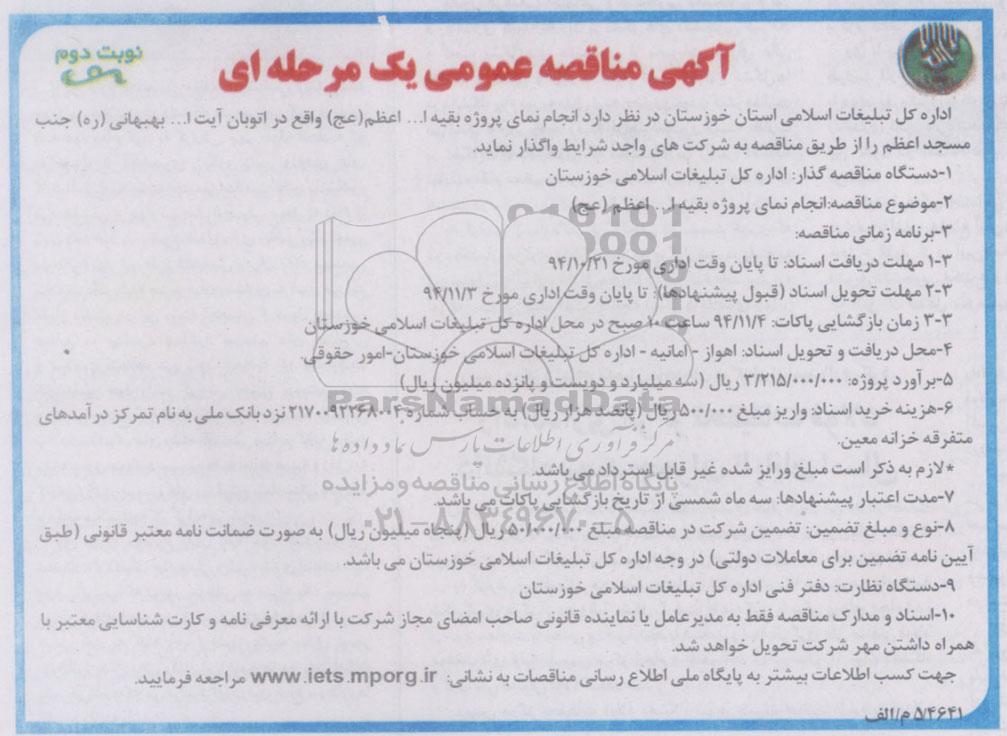 نوبت دوم
آگهی مناقصه عمومی یک مرحله ای
اداره کل تبلیغات اسلامی استان خوزستان در نظر دارد انجام نمای پروژه بقیه ا... اعظم(عج) واقع در اتوبان آیت ا... بهبهانی (ره) جنب
مسجد اعظم را از طریق مناقصه به شرکت های واجد شرایط واگذار نماید.
۱-دستگاه مناقصه گذار: اداره کل تبلیغات اسلامی خوزستان
۲-موضوع مناقصه:انجام نمای پروژه بقیه ا... اعظم (عج)
۳-برنامه زمانی مناقصه:
۳-۱ مهلت دریافت اسناد: تا پایان وقت اداری مورخ ۹۴/۱۰/۲۱
۳-۲ مهلت تحویل اسناد (قبول پیشنهادها): تا پایان وقت اداری مورخ ۹۴/۱۱/۳
۳-۳ زمان بازگشایی پاکات: ۹۴/۱۱/۴ ساعت ۱۰ صبح در محل اداره کل تبلیغات اسلامی خوزستان
۴-محل دریافت و تحویل اسناد: اهواز - امانیه - اداره کل تبلیغات اسلامی خوزستان-امور حقوقی
۵-برآورد پروژه: ۳/۲۱۵/۰۰۰/۰۰۰ ریال (سه میلیارد و دویست و پانزده میلیون ریال)
ParsNamadData
۶-هزینه خرید اسناد: واریز مبلغ ۵۰۰/۰۰۰ ریال (پانصد هزار ریال) به حساب شماره ۲۱۷۰۰۹۲۲۶۸۰۰۴ نزد بانک ملی به نام تمرکز درآمدهای
متفرقه خزانه معین.
مرکز فرآوری اطلاعات پارس نماد داده ها
*لازم به ذکر است مبلغ ورایز شده غیر قابل استرداد می باشد.
پایگاه اطلاع رسانی مناقصه و مزایده
۷-مدت اعتبار پیشنهادها: سه ماه شمسی از تاریخ بازگشایی پاکات می باشد
۰۲۱-۸۸۳۴۹۶۷۰-۵
۸-نوع و مبلغ تضمین: تضمین شرکت در مناقصه مبلغ ۵۰/۰۰۰/۰۰۰ ریال (پنجاه میلیون ریال) به صورت ضمانت نامه معتبر قانونی (طبق
آیین نامه تضمین برای معاملات دولتی) در وجه اداره کل تبلیغات اسلامی خوزستان می باشد.
۹-دستگاه نظارت: دفتر فنی اداره کل تبلیغات اسلامی خوزستان
۱۰-اسناد و مدارک مناقصه فقط به مدیرعامل یا نماینده قانونی صاحب امضای مجاز شرکت با ارائه معرفی نامه و کارت شناسایی معتبر با
همراه داشتن مهر شرکت تحویل خواهد شد.
جهت کسب اطلاعات بیشتر به پایگاه ملی اطلاع رسانی مناقصات به نشانی: www.iets.mporg.ir مراجعه فرمایید.
۵/۴۶۴۱ م/الف